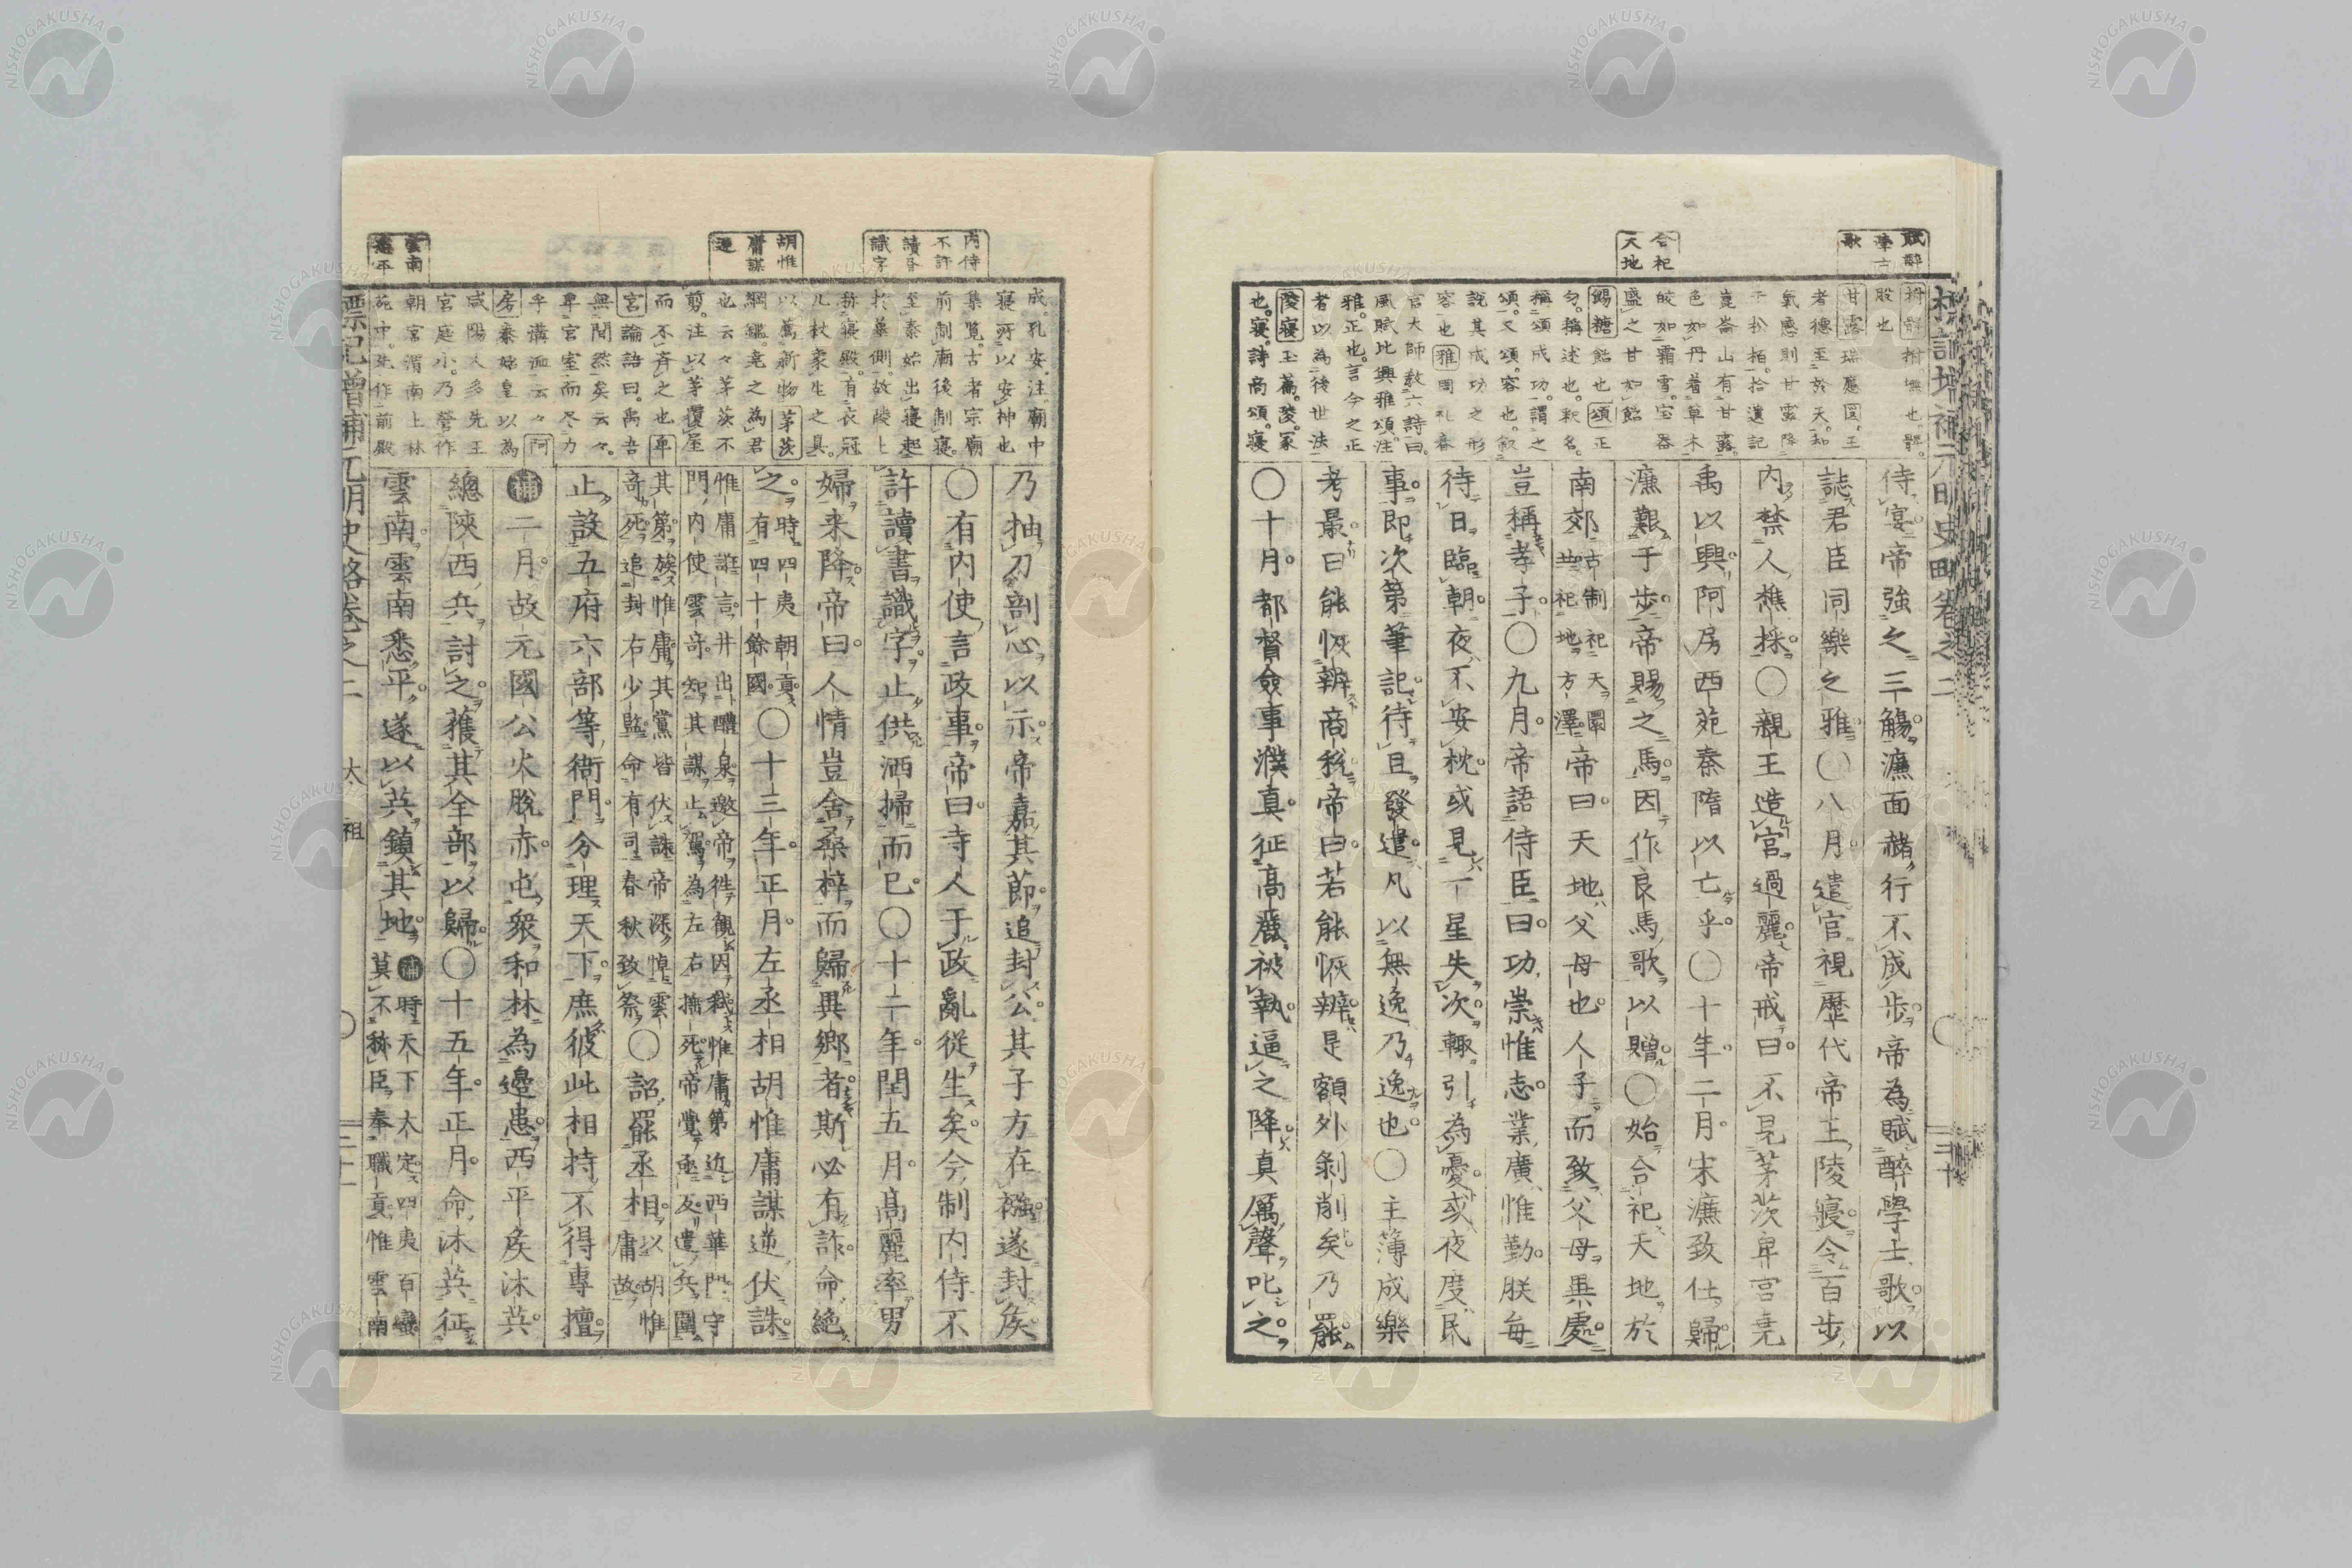 賦醉
學士
歌
合祀
天地
拊髀拊撫也髀
股也
甘露瑞應圖王
者德至於天和
氣感則甘露降
于松柏拾遺記
崑崙山有甘露
色如丹着草木
皎如霜雪宝器
盛之甘如飴
錫糖飴也頌正
匀稱述也釈名
稱頌成功謂之
頌又頌容也叙
説其成功之形
容也雅周礼春
官大師教六詩曰
風賦比興雅頌注
雅正也言今之正
者以為後世法
陵寢玉篇陵冢
也寢詩商頌寢
侍宴帝強之三觴濂面赭行不成歩帝為賦醉學士歌以
誌君臣同樂之雅〇八月遣官視歴代帝王陵寢令百歩
内禁人樵採〇親王造宮過麗帝戒曰不見茅茨卑宮堯
禹以興阿房西苑秦隋以亡乎〇十年二月宋濂致仕歸
濂艱于歩帝賜之馬因作良馬歌以贈〇始合祀天地於
南郊古制祀天圜
丘祀地方澤帝曰天地父母也人子而致父母異處
豈稱孝子〇九月帝語侍臣曰功崇惟志業廣惟勤朕每
待日臨朝夜不安枕或見一星失次輙引為憂或夜度民
事即次第筆記待旦發遣凡以無逸乃逸也〇主簿成樂
考最曰能恢辦商税帝曰若能恢辦是額外剝削矣乃罷
〇十月都督僉事濮真征高麗被執逼之降真厲聲叱之
内侍
不許
讀書
識字
胡惟
庸謀
逆
雲南
悉平
成孔安注廟中
寢所以安神也
集覧古者宗廟
前制廟後制寢
至秦始出寢起
於墓側故陵上
称寢殿有衣冠
几杖象生之具
以薦新物茅茨
綱鑑堯之為君
也云々茅茨不
剪注以茅覆屋
而不斉之也卑
宮論語曰禹吾
無間然矣云々
卑宮室而尽力
乎溝洫云々阿
房秦始皇以為
咸陽人多先王
宮庭小乃営作
朝宮渭南上林
苑中先作前殿
乃抽刀剖心以示帝嘉其節追封公其子方在襁遂封侯
〇有内使言政事帝曰寺人于政亂從生矣今制内侍不
許讀書識字止供洒掃而已〇十二年閏五月高麗率男
婦来降帝曰人情豈舍桑梓而歸異郷者斯必有詐命絶
之時四夷朝貢
有四十餘國〇十三年正月左丞相胡惟庸謀逆伏誅
惟庸誑言井出醴泉邀帝徃観因弑惟庸第近西華門守
門内使雲奇知其謀止駕為左右撾死帝覺亟反遣兵圍
其第族惟庸其黨皆伏誅帝深悼雲
奇死追封右少監命有司春秋致祭〇詔罷丞相以胡惟
庸故
止設五府六部等衙門分理天下庶彼此相持不得專擅
補二月故元國公火脱赤屯衆和林為邊患西平侯沐英
總陝西兵討之獲其全部以歸〇十五年正月命沐英征
雲南雲南悉平遂以英鎮其地補時天下大定四夷百蠻
莫不称臣奉職貢惟雲南
標記增補元明史略卷之二 太祖